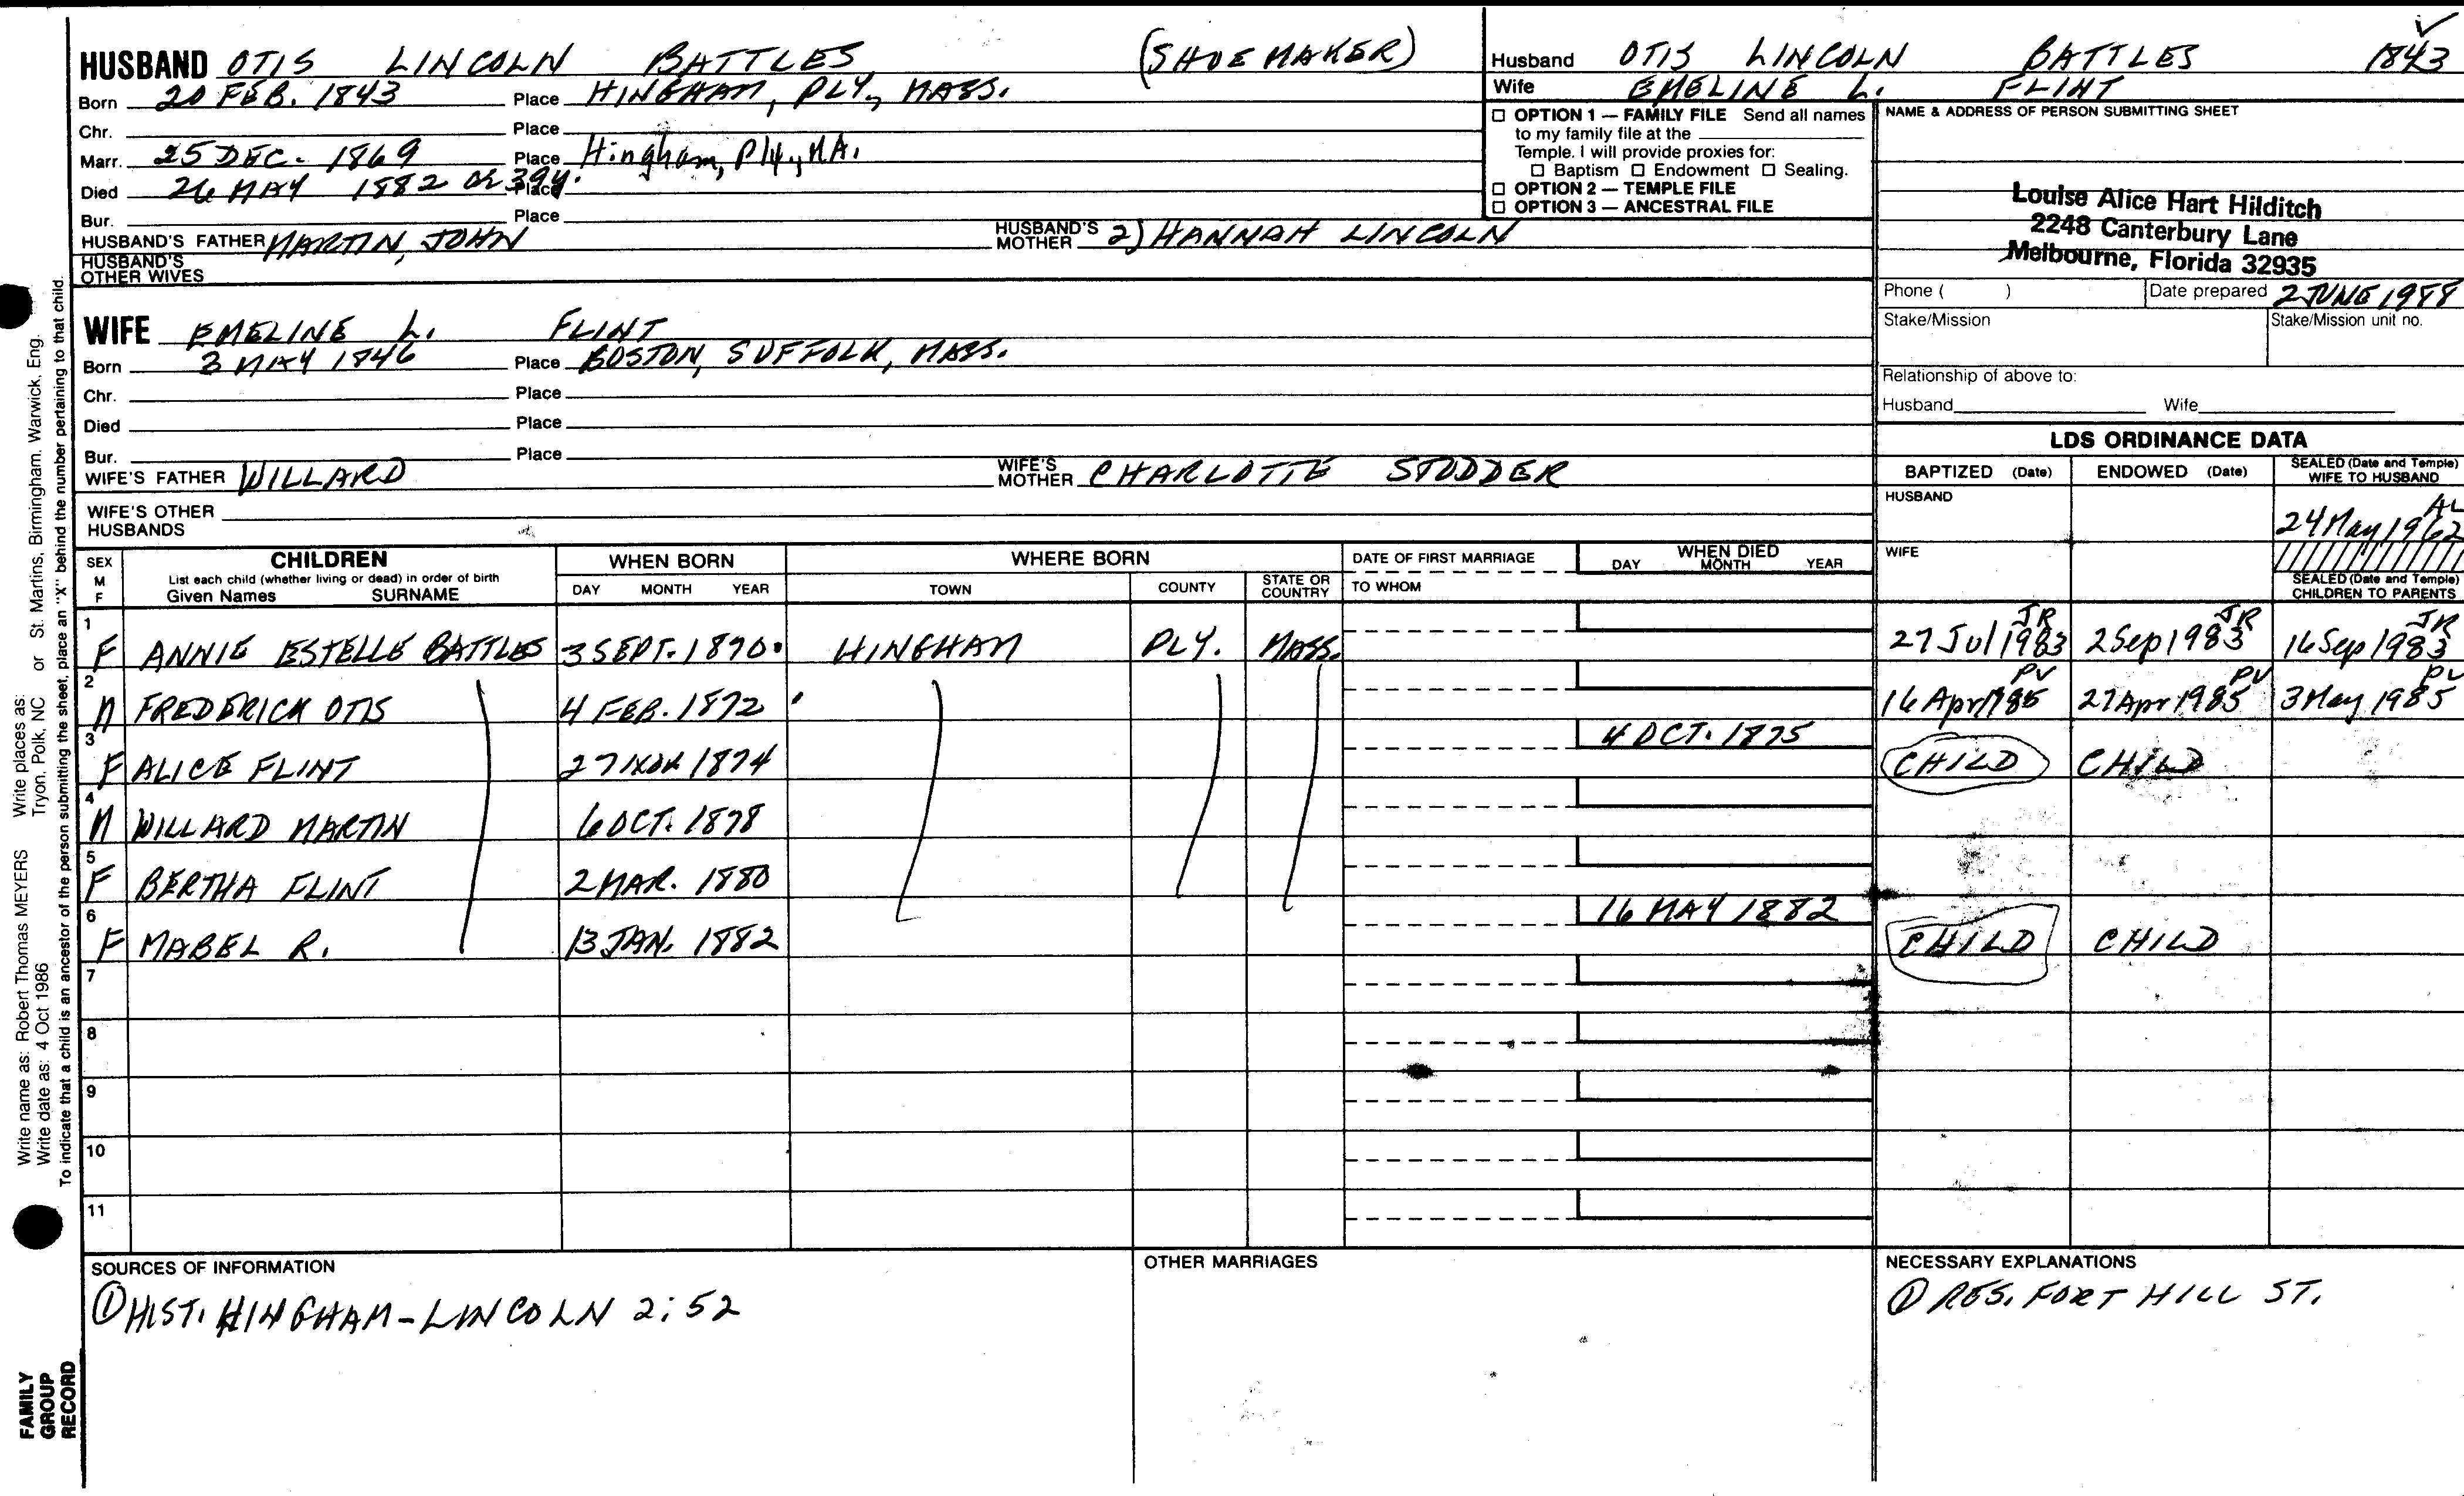 HUSBAND OTIS LINCOLN BATTLES (SHOEMAKER)
Born 20 FEB. 1843 Place HINGHAM, PLY., MASS.
Chr. Place
Marr. 25 DEC. 1869 Place Hingham, Ply., MA.
Died 26 MAY 1882 Æ 39y. Place
Bur. Place
HUSBAND'S FATHER MARTIN, JOHN HUSBAND'S MOTHER 2) HANNAH LINCOLN
HUSBAND'S OTHER WIVES
WIFE EMELINE L. FLINT
Born 3 MAY 1846 Place BOSTON, SUFFOLK, MASS.
Chr. Place
Died Place
Bur. Place
WIFE'S FATHER WILLARD WIFE'S MOTHER CHARLOTTE STODDER
WIFE'S OTHER HUSBANDS
Husband OTIS LINCOLN BATTLES 1843
Wife EMELINE L. FLINT
☐ OPTION 1 — FAMILY FILE Send all names
to my family file at the
Temple. I will provide proxies for:
☐ Baptism ☐ Endowment ☐ Sealing.
☐ OPTION 2 — TEMPLE FILE
☐ OPTION 3 — ANCESTRAL FILE
NAME & ADDRESS OF PERSON SUBMITTING SHEET
Louise Alice Hart Hilditch
2248 Canterbury Lane
Melbourne, Florida 32935
Phone ( ) Date prepared 2 JUNE 1988
Stake/Mission Stake/Mission unit no.
Relationship of above to:
Husband Wife
LDS ORDINANCE DATA
BAPTIZED (Date) ENDOWED (Date) SEALED (Date and Temple) WIFE TO HUSBAND
HUSBAND AL
24 May 1962
WIFE
SEALED (Date and Temple) CHILDREN TO PARENTS
SEX M F CHILDREN WHEN BORN WHERE BORN DATE OF FIRST MARRIAGE WHEN DIED
List each child (whether living or dead) in order of birth
Given Names SURNAME DAY MONTH YEAR TOWN COUNTY STATE OR COUNTRY TO WHOM DAY MONTH YEAR
1 F ANNIE ESTELLE BATTLES 3 SEPT. 1870 HINGHAM PLY. MASS. 27 Jul 1983 JR 2 Sep 1983 JR 16 Sep 1983 JR
2 M FREDERICK OTIS 4 FEB. 1872 16 Apr 1985 PV 27 Apr 1985 PV 3 May 1985 PV
3 F ALICE FLINT 27 NOV 1874 4 OCT. 1875 CHILD CHILD
4 M WILLARD MARTIN 6 OCT. 1878
5 F BERTHA FLINT 2 MAR. 1880
6 F MABEL R. 13 JAN. 1882 16 MAY 1882 CHILD CHILD
7
8
9
10
11
SOURCES OF INFORMATION
① HIST. HINGHAM - LINCOLN 2:52
OTHER MARRIAGES
NECESSARY EXPLANATIONS
① RES. FORT HILL ST.
Write name as: Robert Thomas MEYERS Write places as: St. Martins, Birmingham. Warwick, Eng.
Write date as: 4 Oct 1986 Tryon, Polk, NC or
To indicate that a child is an ancestor of the person submitting the sheet, place an "X" behind the number pertaining to that child.
FAMILY
GROUP
RECORD